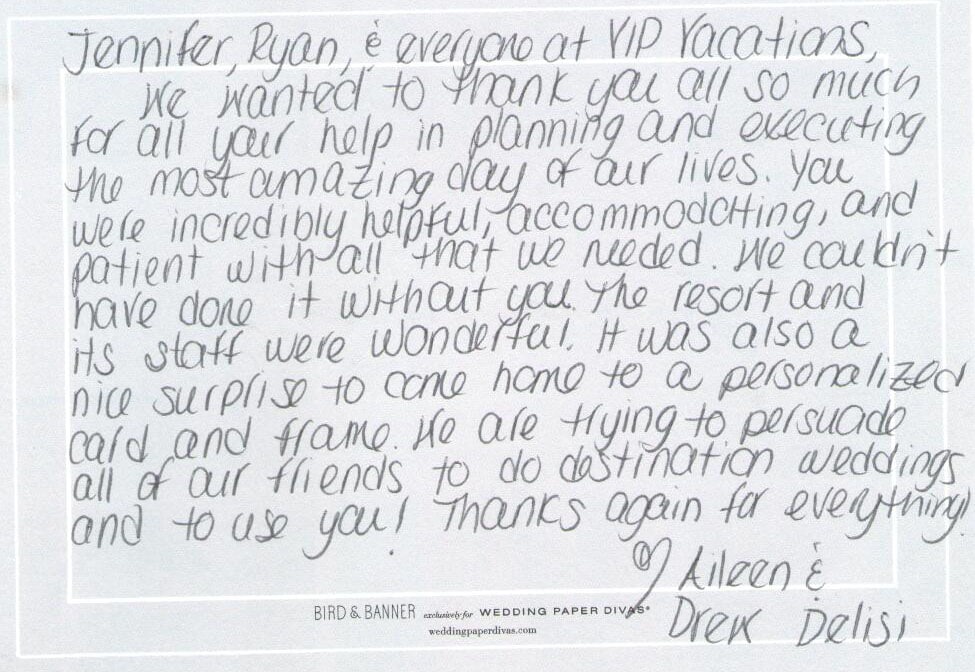 Jennifer, Ryan, & everyone at VIP Vacations,
We wanted to thank you all so much
for all your help in planning and executing
the most amazing day of our lives. You
were incredibly helpful, accommodating, and
patient with all that we needed. We couldn't
have done it without you. The resort and
its staff were wonderful. It was also a
nice surprise to come home to a personalized
card and frame. We are trying to persuade
all of our friends to do destination weddings
and to use you! Thanks again for everything!
♡ Aileen &
Drew Delisi
BIRD & BANNER exclusively for WEDDING PAPER DIVAS®
weddingpaperdivas.com